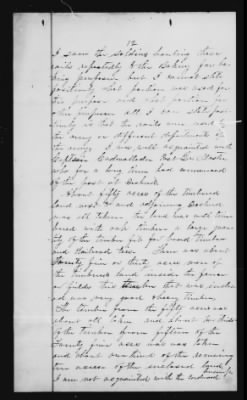 12
I seen the soldiers hauling these
rails repeatedly to the Bakery for ba
king purposes but I cannot state
positively what portion was used for
this purpose and what portion for
other purposes all I can state posi
tively is that the rails were used by
the army or different departments of
the army. I was well acquainted with
Captain Cadwallader Post Qr. Master
who for a long time had command
of the post at
About fifty acres of the timbered
land west of and adjoining
was all taken. The land was well tim
bered with oak timber a large quan
tity of the timber fit for board timber
and Railroad ties. There was about
Twenty five or thirty acres more of
the timbered land inside the fence
or fields this timber that was inclos
ed was very good & heavy timber.
The timber from the fifty acres was
about all taken and about two thirds
of the timber from fifteen of the
Twenty five acres was taken
and about one third of the remaining
ten acres of the enclosed land.
I am not acquainted with the